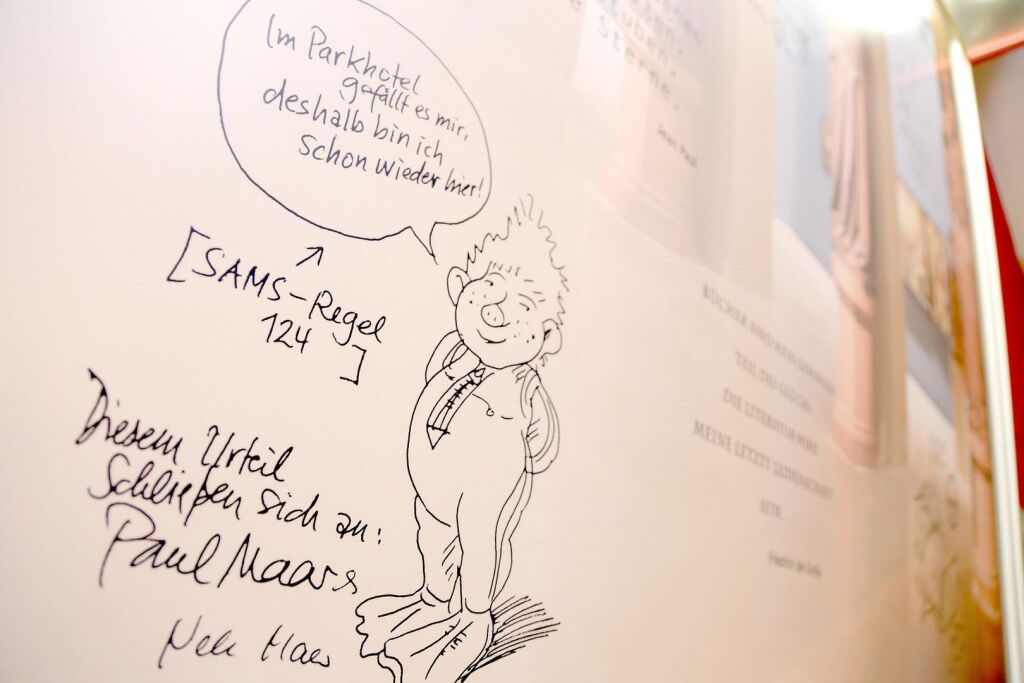 Im Parkhotel
gefällt es mir,
deshalb bin ich
schon wieder hier!
[SAMS-Regel
124
]
Diesem Urteil
schließen sich an:
Paul Maar &
Nele Maar
Sterne.
Jean Paul
BÜCHER SIND MEIN
TEIL DES
DIE LITERATUR WIRD
MEINE LETZTE LEIDENSCHAFT
SEIN.
Friedrich der Große